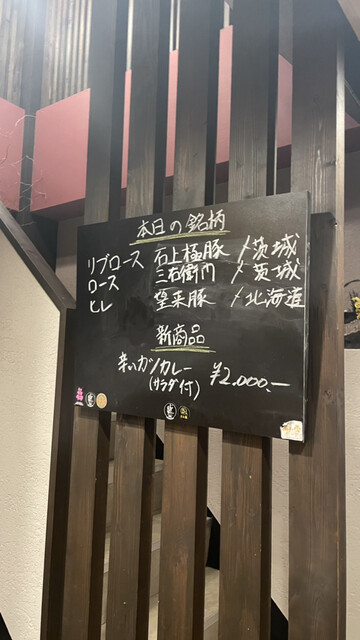 本日の銘柄
リブロース 石上極豚 / 茨城
ロース 三右衛門 / 茨城
ヒレ 望来豚 / 北海道
新商品
辛いガツカレー ¥2,000.—
(サラダ付)